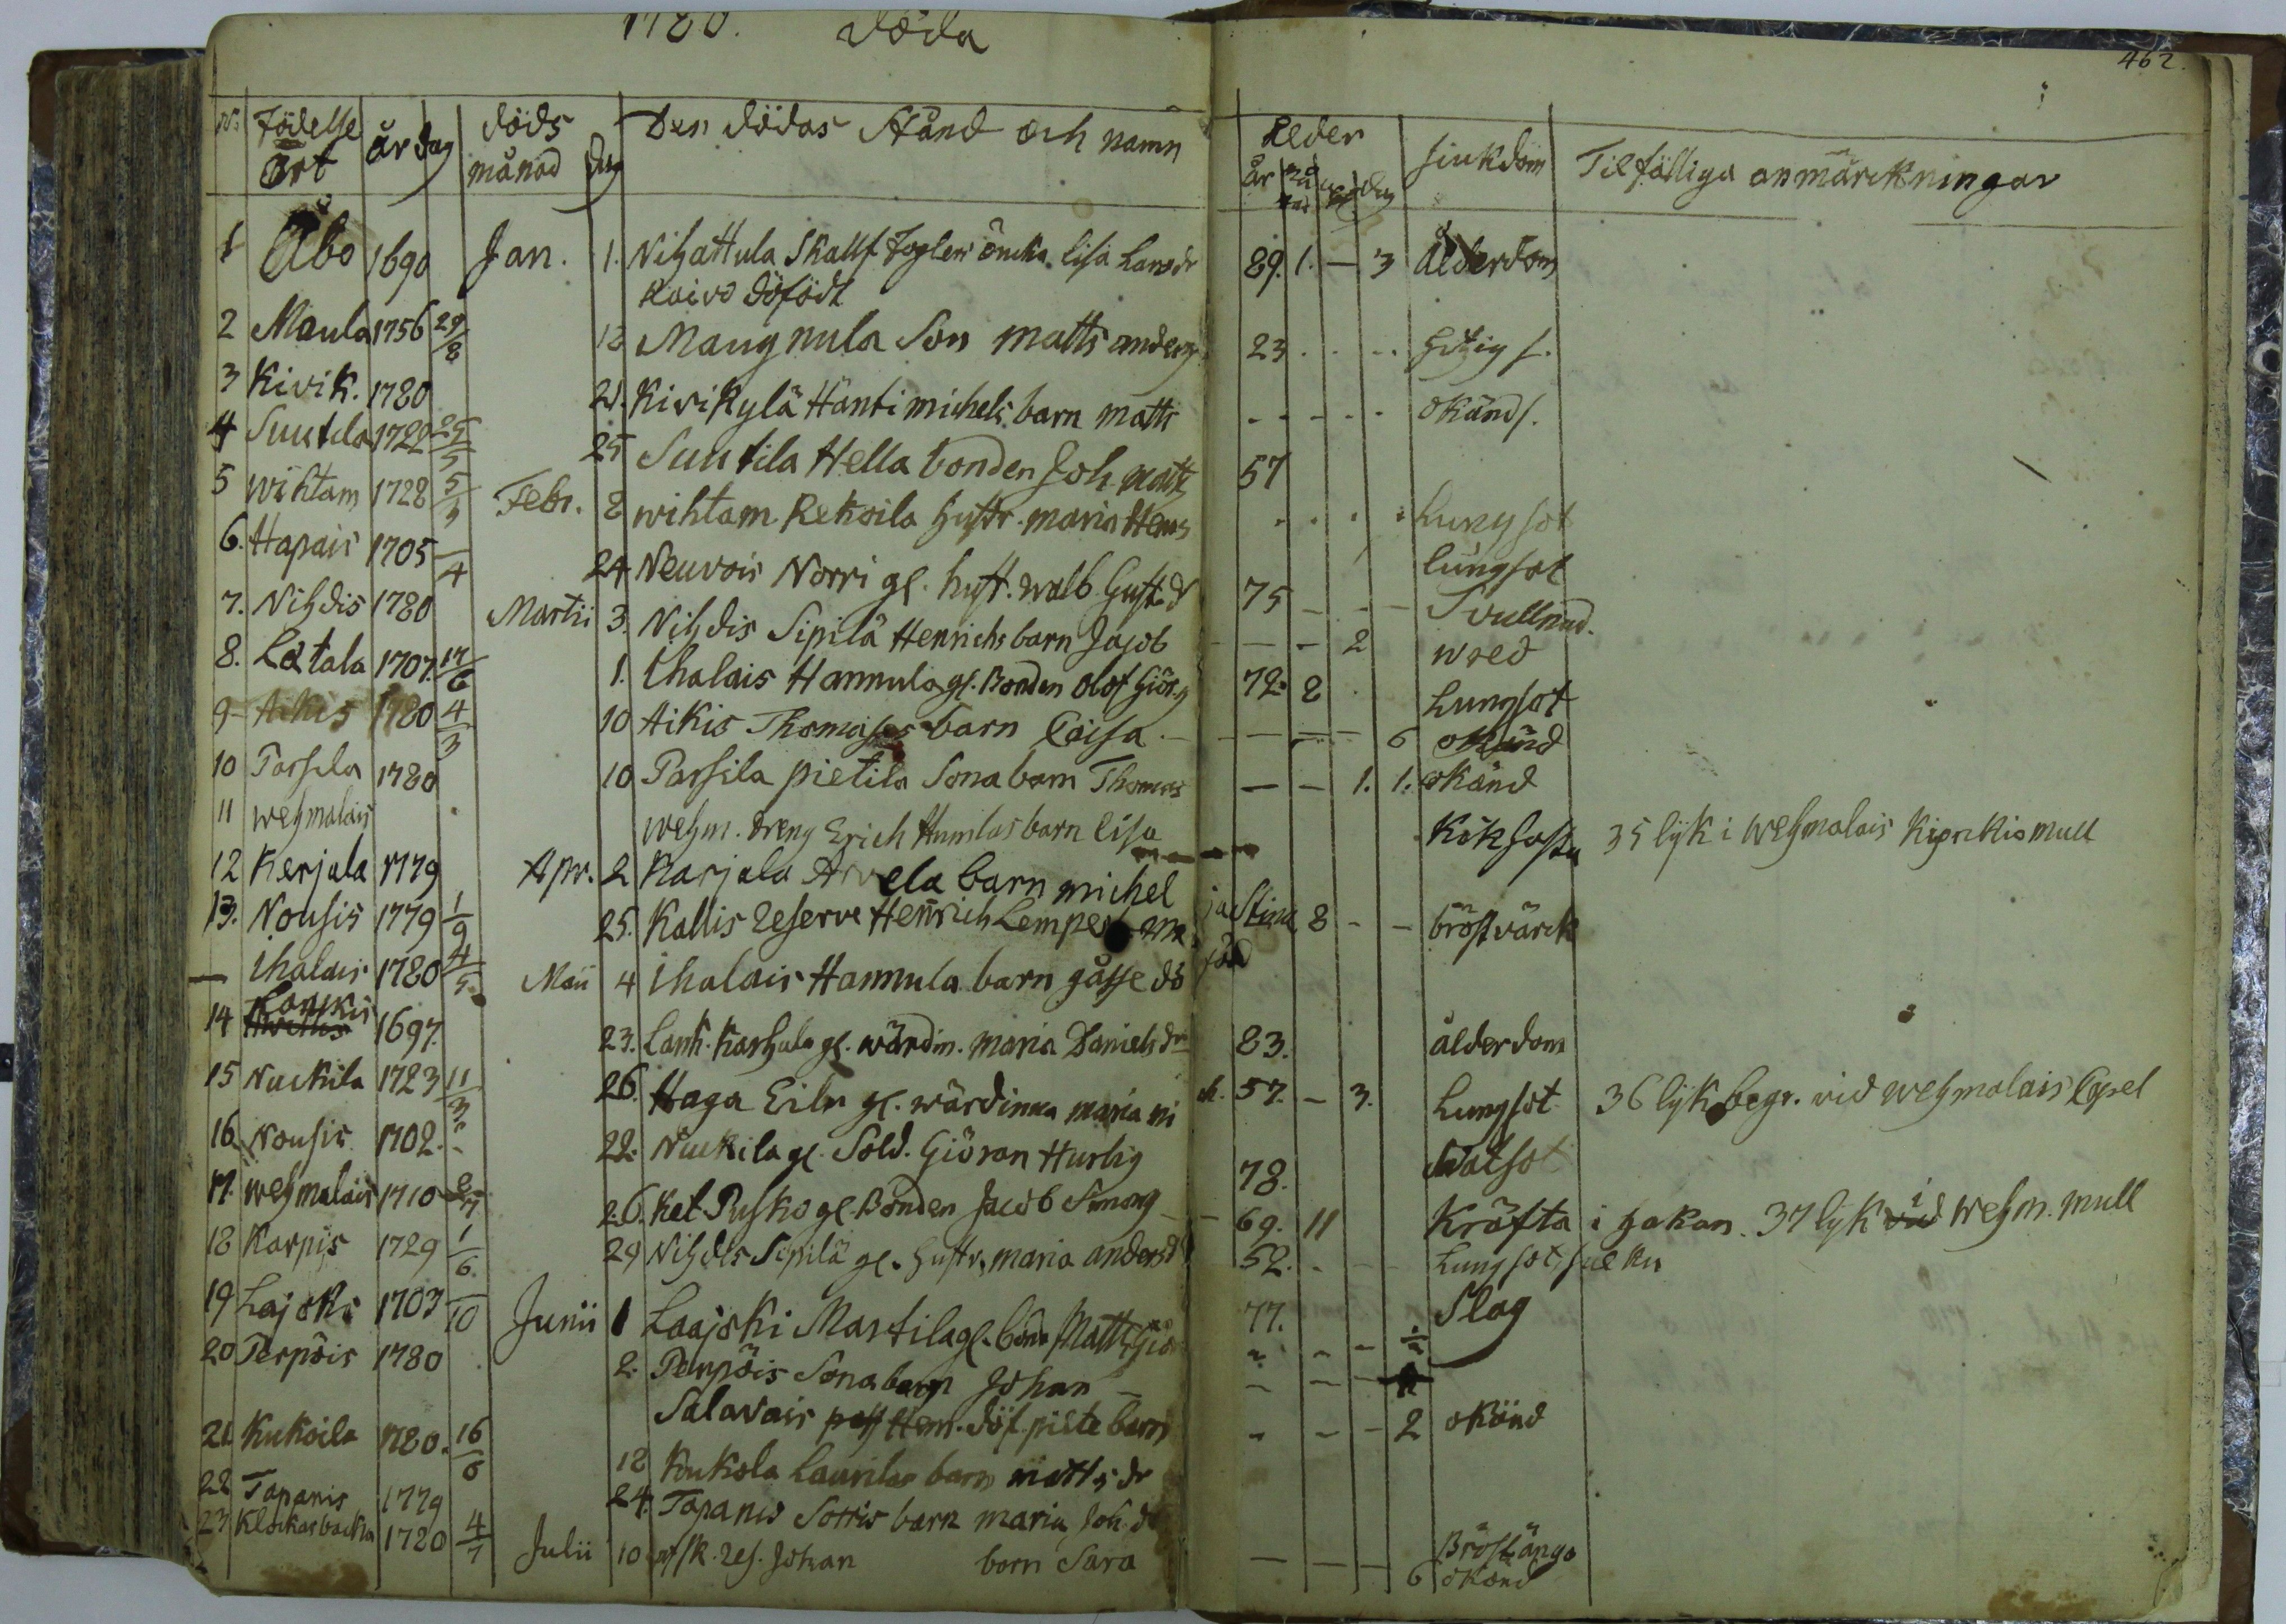 1780. döda
462.
No födelse ort år dag döds månad dag Den dödas Stånd och namn
ålder år må nad dag siukdom Tilfälliga anmärkningar
1 Åbo 1690 Jan. 1. Nihattula Skallf. Lisa Larsdr 89. 1. – 3 ålderdom
Koivo döfödt
2 Maula 1756 29/8 13 Maugnula Son Matts anders 23 . . . hitzig f.
3 Kivik. 1780 21. Kivikylä Hänti michels barn matts - - - - okänd s.
4 Suutila 1722 25/5 25 Suutila Hella bonden Joh. matts 57
5 wihtam 1728 5/3 Febr. 8 wihtam Rekoila hustr. maria Hens . . . . Lungsot
6. Hapais 1705 /4 24 Neuvois Norri gl. hust. walb. Gust.d 75 – – – lungsot
Svullnad.
7. Nihdis 1780 Martii 3. Nihdis Sipilä Henrichs barn Jacob – – 2 wred
8. Latala 1707. 17/6 1. Ihalais Hannula gl. Bonden olof Giörs 72. 8 Lungsot
9 Aikis 1780 4/3 10 Aikis Thomases barn Caisa – – – – 6 okänd
10 Parsila 1780 10 Parsila pietila Sona barn Thomas – – 1. 1. okänd
11 wehmalais wehm. dreng Erich Humlas barn lisa Kikhosta 35 lijk i wehmalais Kiprkio mull
12 Kerjala 1779 Apr. 2 Karjala Arvela barn michel
13. Nousis 1779 1/9 25. Kallis reserve Henrich Lempes ma ja Stina 8 – – bröstvärck
– ihalais 1780 4/5 Maii 4 ihalais Hannula barn gåsse dö föd
14 Laukis 1697. 23. Lank. Karhula gl. wärdin. maria Danielsdr 83. ålderdom
15 Nuckila 1723 11/3 26. Haga Eilu gl. wärdinna maria mi ch. 57. – 3. Lungsot 36 lijk begr. vid wehmalais Capel
16 Nousis 1702. 22. Nuckila gl. Sold. Giöran Hurtig 78. Watsot
17. wehmalais 1710 26. Ket. Pusko gl. Bonden Jacob Simons – 69. 11 Kräfta i hakan. 37 lijk i wehm. mull
18 Karpis 1729 1/6 29 Nihdis Sipilä gl. hustr. maria andersd 52. - Lungsot
19 Lajoki 1703 /10 Junii 1 Laajoki Martila gl. bond Matts Giör 77. Slag
20 Perpöis 1780 2. Perpöis Sona barn Johan –
Salavais Hem. döf. pilte barn
21 Kukoila 1780. 16/6 18 Koukola Laurilas barn matts dr - - - 2 okänd
22 Tapanis 1779 24. Tapanis Sorris barn maria Joh. dr Bröstånga
23 Klockarbacka 1720 4/7 Julii 10 res. Johan barn Sara – – – 6 okänd